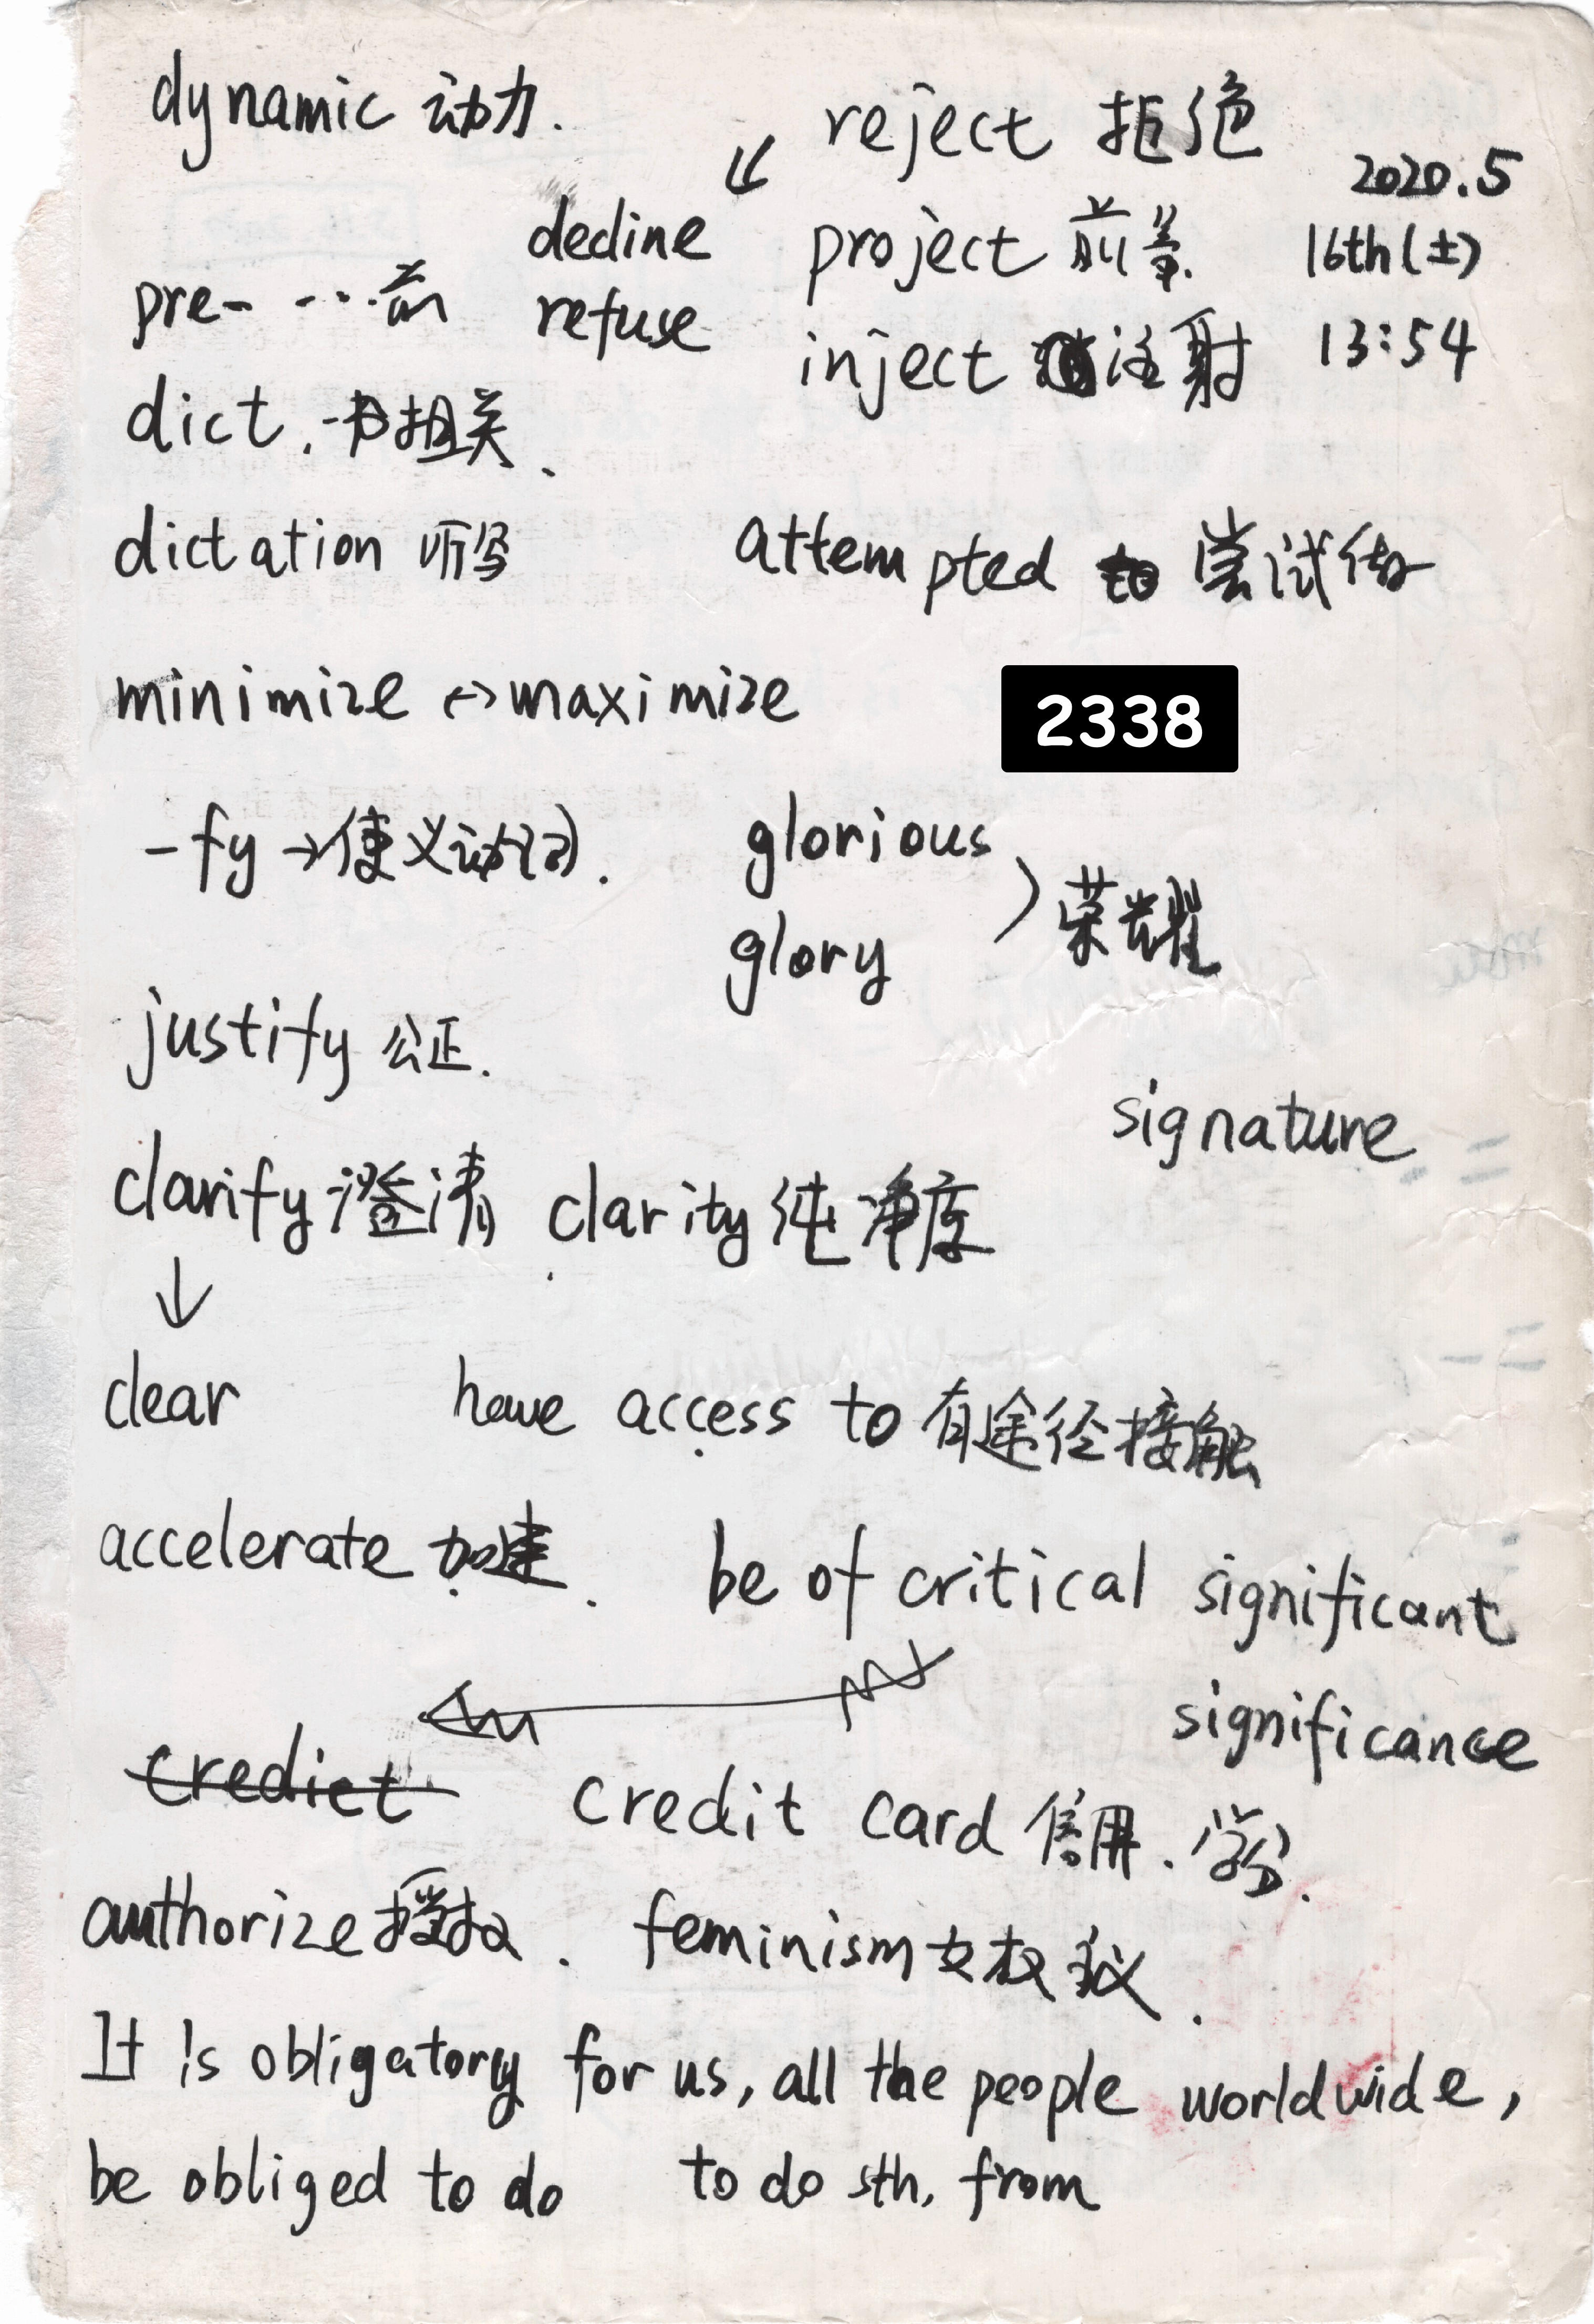 dynamic 动力.
reject 拒绝
2020.5
decline
project 前景
16th(土)
pre- ...前
refuse
inject 注射
13:54
dict. 相关
dictation 听写
attempted to 尝试做
minimize ↔ maximize
2338
-fy → 使义动词.
glorious
glory
荣耀
justify 公正.
signature
clarify 澄清 clarity 纯净度
↓
clear
have access to 有途径接触
accelerate 加速.
be of critical significant
significance
credict
credit card 信用. 学分.
authorize 授权. feminism 女权议.
It is obligatory for us, all the people worldwide,
be obliged to do to do sth. from